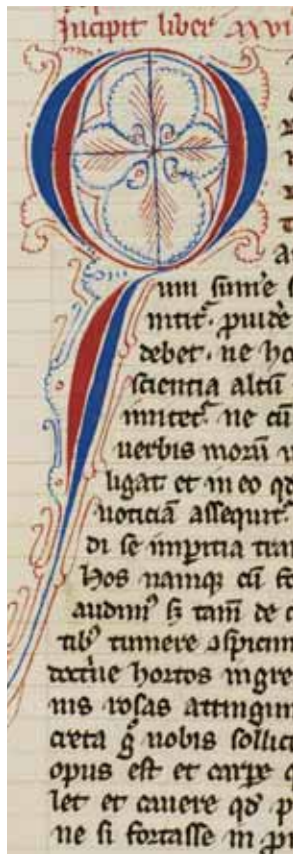 Incipit liber xvii
Q
um sum̄e s
intit᷑. ꝓuidē
debet. ne ho
scientia altū
mitet᷑. ne cū
uerbis morū
ligat et in eo qd
noticiā assequit᷑
di se imꝑitia tra
Hos namqꝫ cū
audimꝰ ſꝫ tam̄ de
tibꝰ timere aspicim
doct̄ne hortos ingre
nis rosas attingim
creta g̊ uobis sollic
opus est et carpe
let et cauere qd̓ p
ne si fortasse in pri